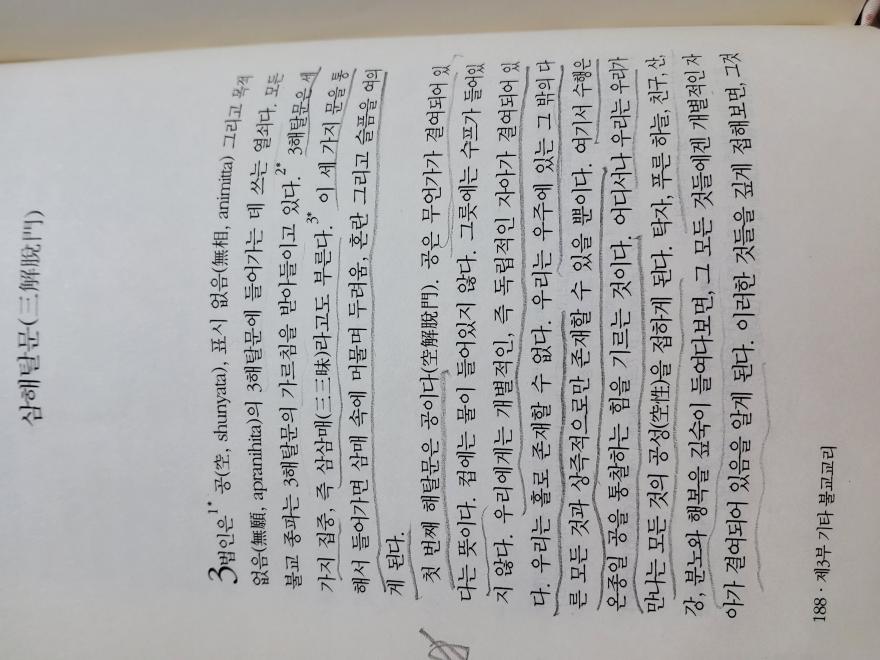 삼해탈문(三解脫門)
3법인은1* 공(空, shunyata), 표시 없음(無相, animitta) 그리고 목적
없음(無願, apranihita)의 3해탈문에 들어가는 데 쓰는 열쇠다. 모든
불교 종파는 3해탈문의 가르침을 받아들이고 있다.2* 3해탈문은 세
가지 집중, 즉 삼삼매(三三昧)라고도 부른다.3* 이 세 가지 문을 통
해서 들어가면 삼매 속에 머물며 두려움, 혼란 그리고 슬픔을 여의
게 된다.
첫 번째 해탈문은 공이다(空解脫門). 공은 무언가가 결여되어 있
다는 뜻이다. 컵에는 물이 들어있지 않다. 그릇에는 수프가 들어있
지 않다. 우리에게는 개별적인, 즉 독립적인 자아가 결여되어 있
다. 우리는 홀로 존재할 수 없다. 우리는 우주에 있는 그 밖의 다
른 모든 것과 상즉적으로만 존재할 수 있을 뿐이다. 여기서 수행은
온종일 공을 통찰하는 힘을 기르는 것이다. 어디서나 우리는 우리가
만나는 모든 것의 공성(空性)을 접하게 된다. 탁자, 푸른 하늘, 친구, 산,
강, 분노와 행복을 깊숙이 들여다보면, 그 모든 것들에겐 개별적인 자
아가 결여되어 있음을 알게 된다. 이러한 것들을 깊게 접해보면, 그것
188 · 제3부 기타 불교교리